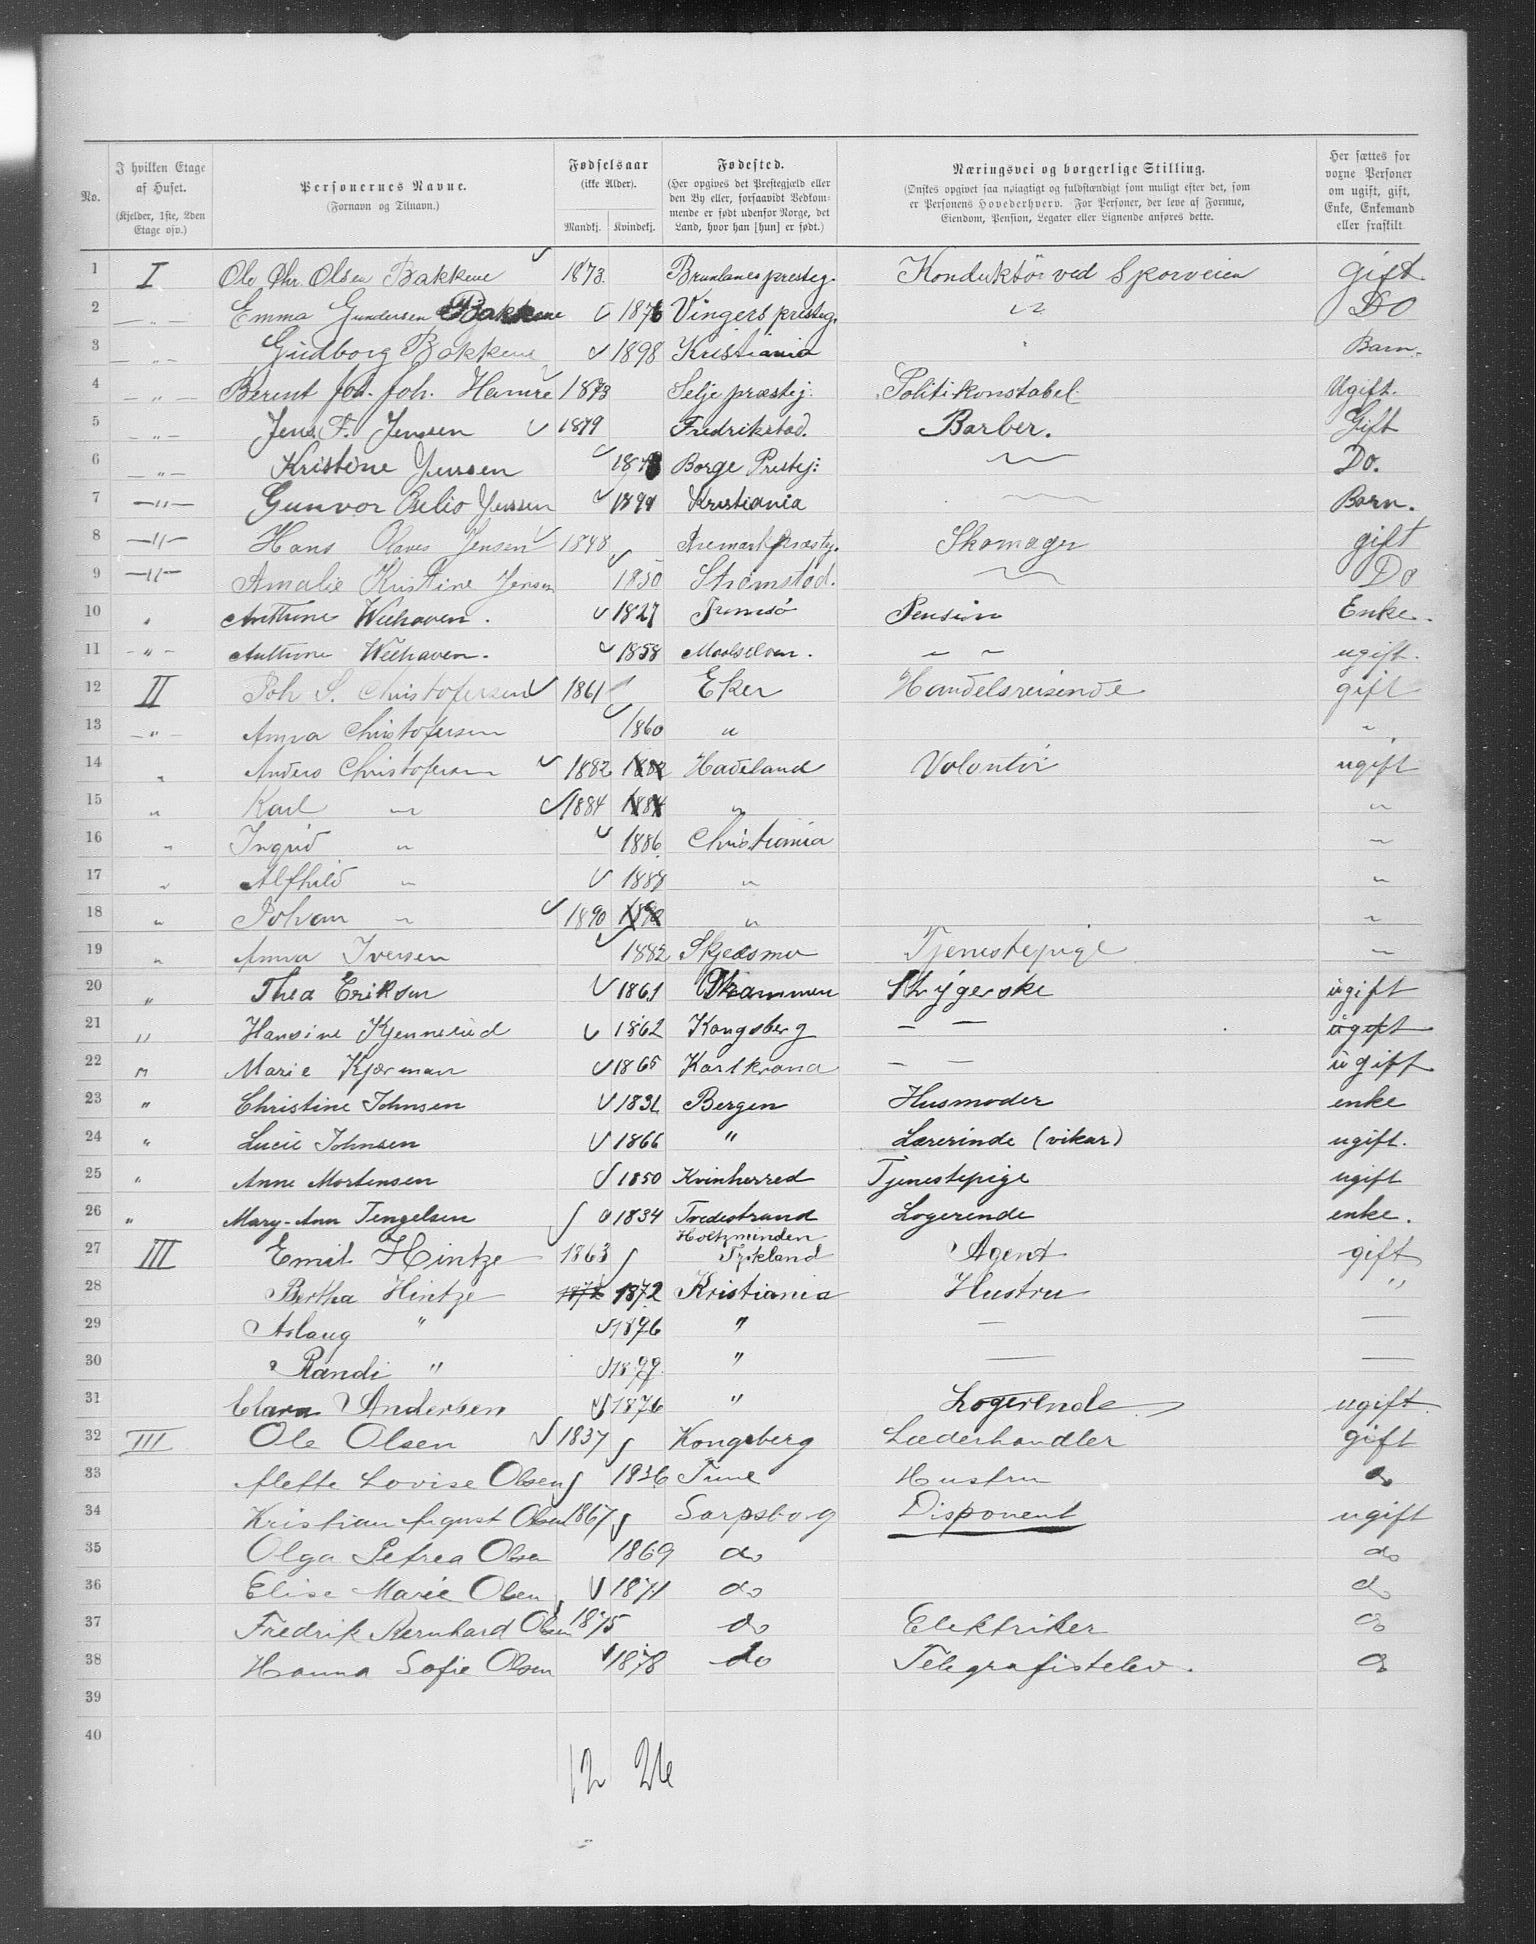 No. | I hvilken Etage af Huset. (Kjelder, 1ste, 2den Etage osv.) | Personernes Navne. (Fornavn og Tilnavn.) | Fødselsaar (ikke Alder). Mandkj. Kvindekj. | Fødested. (Her opgives det Prestegjæld eller den By eller, forsaavidt Vedkommende er født udenfor Norge, det Land, hvor han [hun] er født.) | Næringsvei og borgerlige Stilling. (Ønskes opgivet saa nøiagtigt og fuldstændigt som muligt efter det, som er Personens Hovederhverv. For Personer, der leve af Formue, Eiendom, Pension, Legater eller Lignende anføres dette.) | Her sættes for voxne Personer om ugift, gift, Enke, Enkemand eller fraskilt
1 I Ole Chr. Olsen Bakkene 1873. Brunlanes presteg. Konduktör ved Sporveien gift
2 — " — Emma Gundersen Bakkene 1876 Vingers presteg. " Do
3 — " — Gudborg Bakkene 1898 Kristiania " Barn.
4 — " — Berent Joh. Hamre 1873 Selje præstej. Politikonstabel Ugift.
5 — " — Jens F. Jenssen 1879 Fredrikstad. Barber. Gift
6 — " — Kristine Jenssen Borge Prestej: — Do.
7 — " — Gunvor Jenssen 1899 Kristiania — Barn.
8 — " — Hans Olaves Jensen 1848 Aremark præstej. Skomager gift
9 — " — Amalie Kristine Jensen 1850 Strömstad. — Do
10 " Anthine Weehaven. 1827 Tromsö Pension Enke.
11 — " — Anthine Weehaven. 1858 Maalselven. — — ugift.
12 II Joh S. Christofersen 1861 Eker Handelsreisende gift
13 — " — Anna Christofersen 1860 " "
14 " Anders Christofersen 1882 1882 Hadeland Volontör ugift
15 " Karl " 1884 1884 " "
16 " Ingrid " 1886 Christiania "
17 " Alfhild " 1888 " "
18 " Johan " 1890 1890 " "
19 " Anna Iversen 1882 Skjedsmo Tjenestepige "
20 " Thea Eriksen 1861 Drammen Strygerske ugift
21 " Hansine Kjennerud 1862 Kongsberg — — ugift
22 " Marie Kjærman 1865 Karlkrona — — ugift
23 " Christine Johnsen 1831 Bergen Husmoder enke
24 " Lucie Johnsen 1866 " Lærerinde (vikar) ugift.
25 " Anne Mortensen 1850 Kvinherred Tjenestepige ugift
26 " Mary-Ann Tengelsen 1834 Tvedestrand Logerende enke.
27 III Emil Hintze 1863 Holtzminden Tyskland Agent gift
28 Bertha Hintze 1872 1872 Kristiania Hustru "
29 Aslaug " 1896 " — —
30 Randi " 1899. " — —
31 Clara Andersen 1876 " Logerende ugift.
32 III Ole Olsen 1837 Kongsberg Læderhandler gift
33 Mette Lovise Olsen 1836 Tune Hustru do
34 Kristian August Olsen 1867 Sarpsborg Disponent ugift
35 Olga Petrea Olsen 1869 do do
36 Elise Marie Olsen 1871 do do
37 Fredrik Bernhard Olsen 1875 do Elektriker do
38 Hanna Sofie Olsen 1878 do Telegrafistelev. do
39
40
12 26